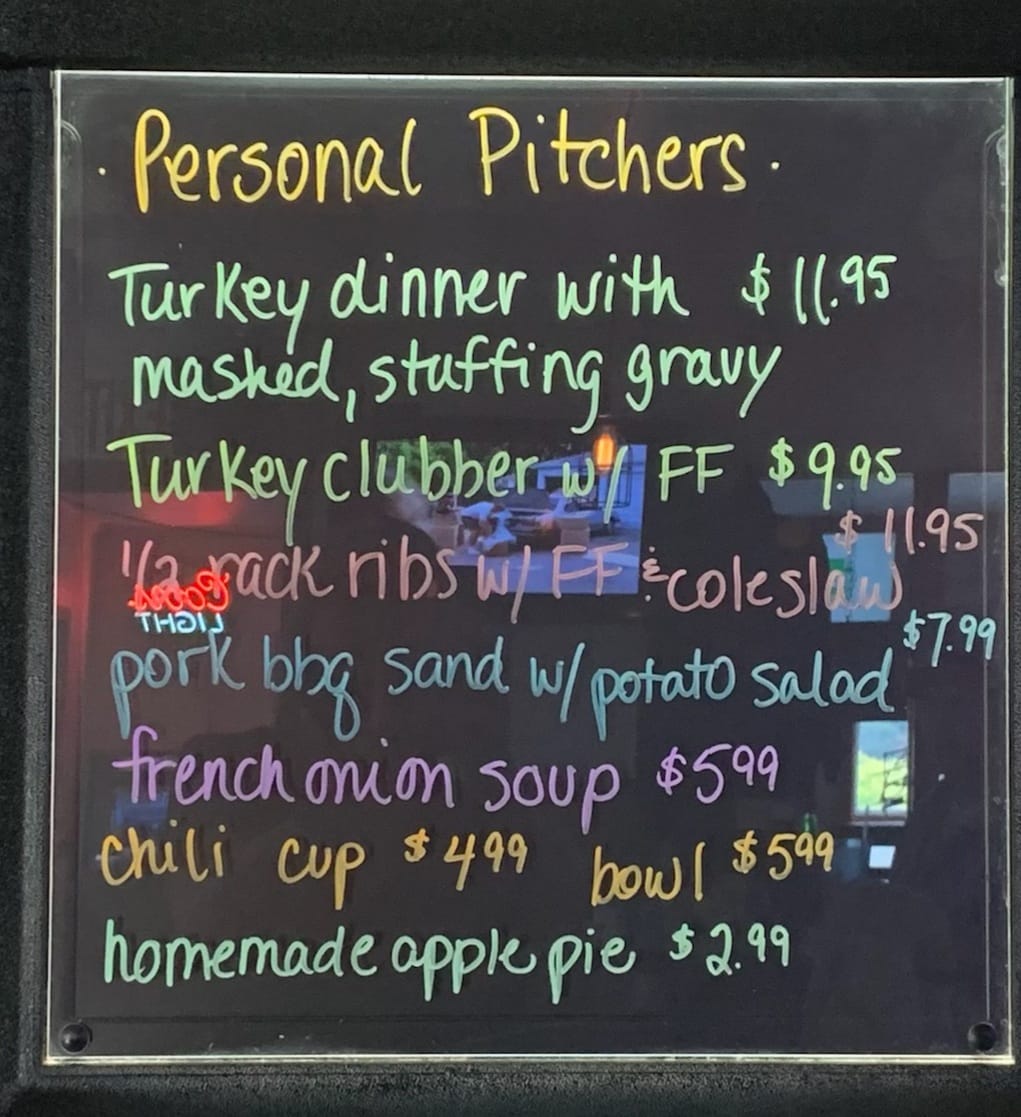 · Personal Pitchers ·
Turkey dinner with $11.95
mashed, stuffing gravy
Turkey clubber w/ FF $9.95
1/2 rack ribs w/ FF & coleslaw $11.95
pork bbq sand w/ potato salad $7.99
french onion soup $5 99
chili cup $4 99 bowl $5 99
homemade apple pie $2.99
Coors
LIGHT